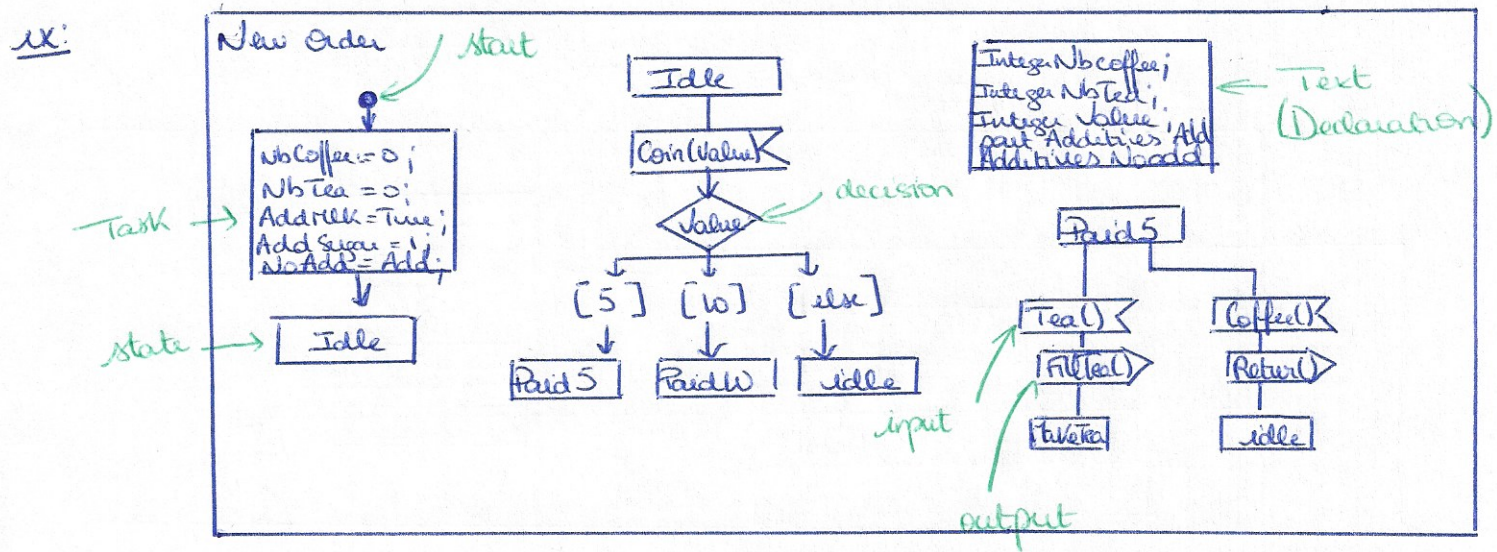 ex:
New Order
start
NbCoffee = 0;
NbTea = 0;
AddMilk = True;
Add Sugar = 1;
NoAdd = Add;
Task
Idle
state
Idle
Coin(Value)
Value
decision
[5] [10] [else]
Paid5 Paid10 idle
Integer Nbcoffee;
Integer NbTea;
Integer Value;
part Additives Add
Additives Noadd
Text
(Declaration)
Paid5
Tea() Coffee()
FillTea() Retur()
TakeTea idle
input
output